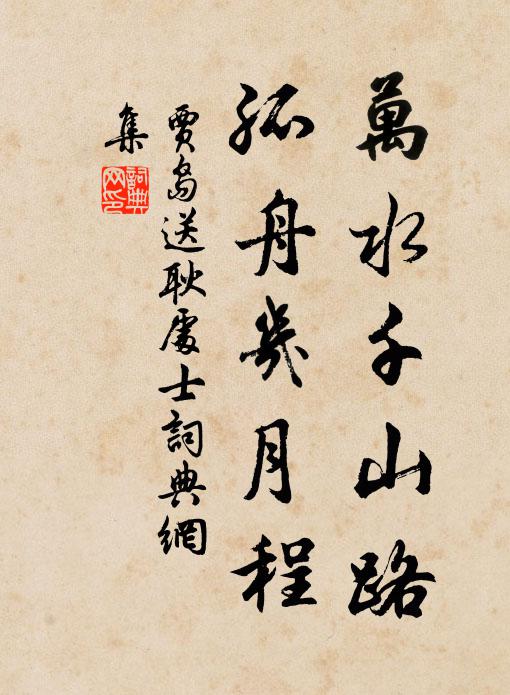 萬水千山路
孤舟幾月程
賈島送耿處士詞典網
集
詞典网印